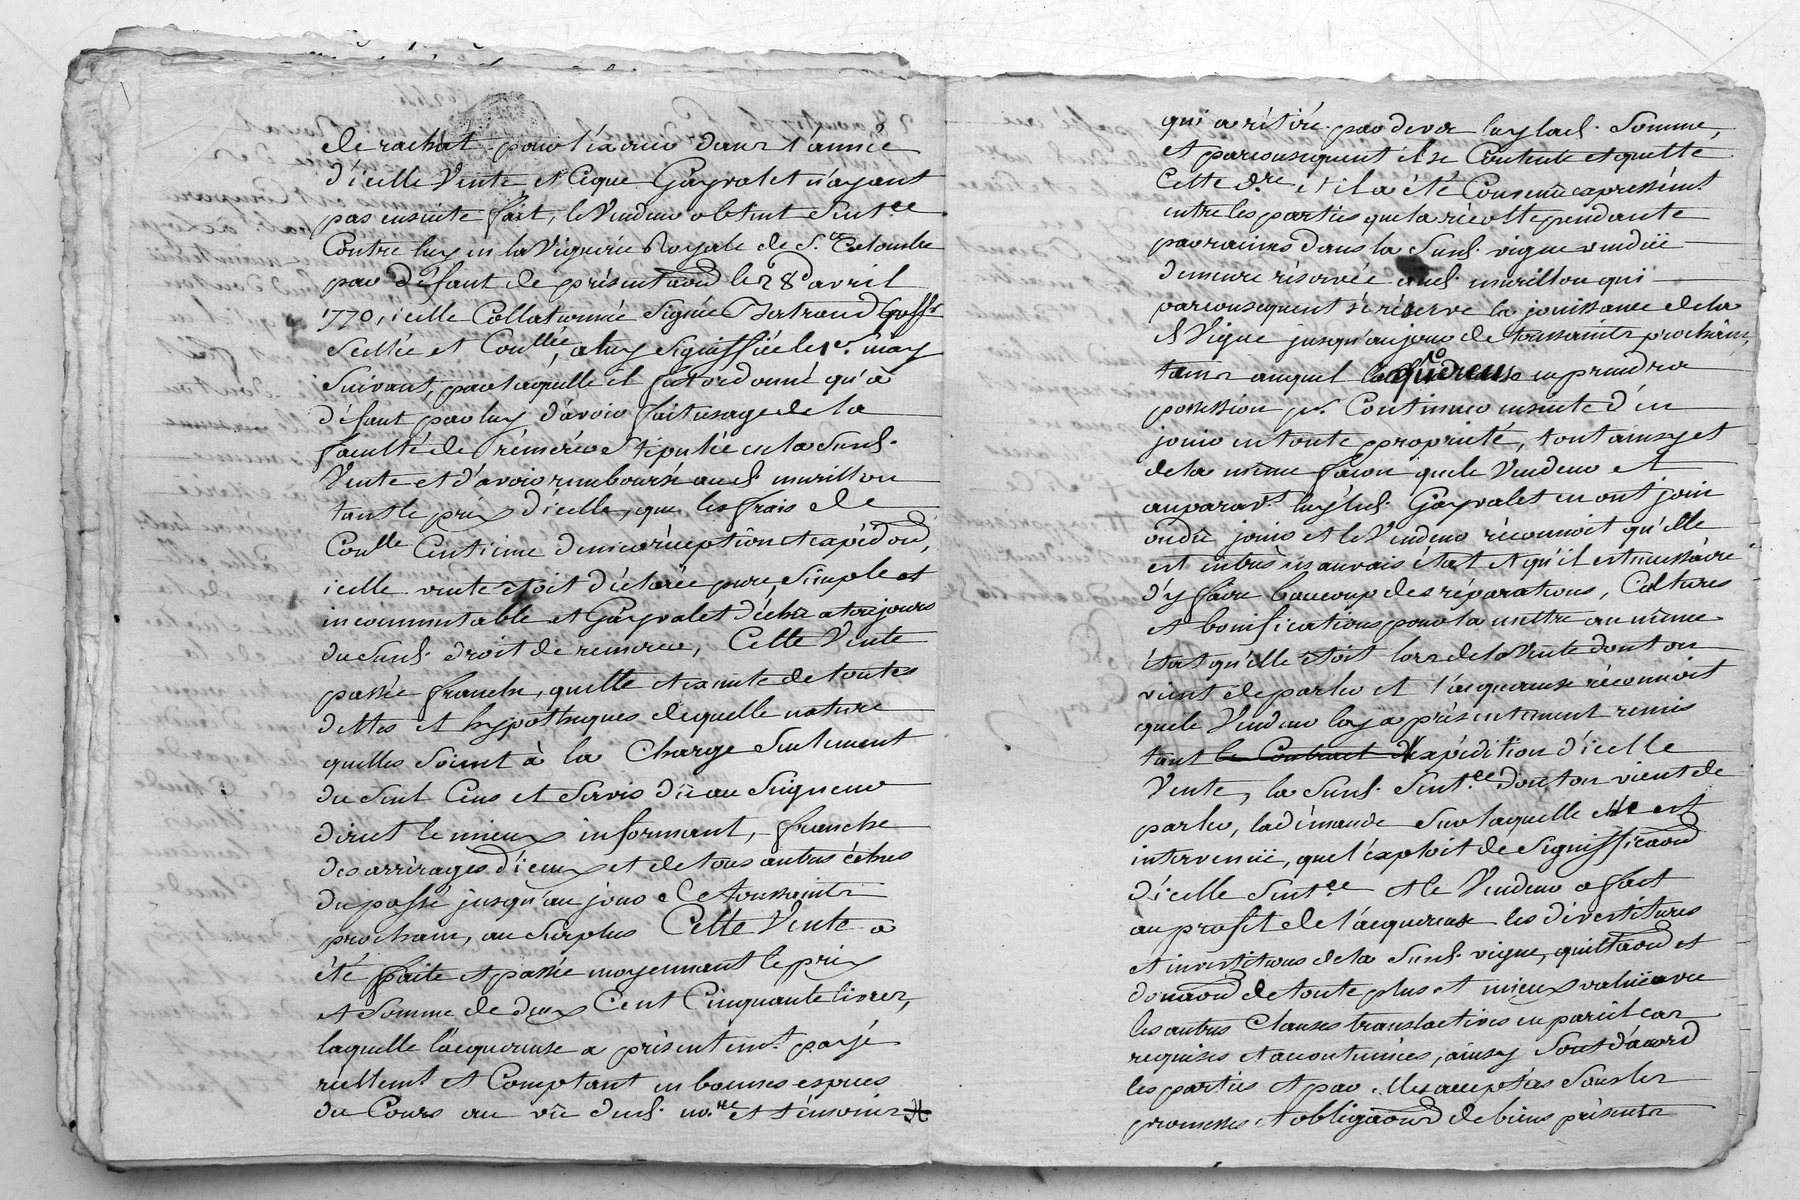 de rachat pour l'exercer dans l'année
d'icelle Vente, et ceque Gayvalet n'ayant
pas ensuite fait, le Vendeur obtint Sentce
Contre luy en la Viguerie Royale de Ste Colombe
par défaut de présentaõn le 28 avril
1770, icelle Collationnée Signée Bertrand Greffr
Scellée et Conllée, a luy Signiffiée le 1er may
Suivant, par laquelle il fut ordonné qu'à
défaut par luy d'avoir fait usage de la
faculté de réméré Stipulée en la Susd.
Vente et d'avoir remboursé aud. murillon
tant le prix d'icelle, que les frais de
Conlle Centieme denier réception et expédoñ,
icelle vente étoit déclarée pure, Simple et
incommutable et Gayvalet déchu a toujours
du Susd. droit de réméré, Cette Vente
passée franche, quitte et exempte de toutes
dettes et hypothèques de quelle nature
quelles Soient à la Charge Seulement
du Seul Cens et Servis dû au Seigneur
direct le mieux informant, franche
des arrérages d'iceux et de tous autres échus
du passé jusqu'au jour de toussaints
prochain, au Surplus Cette Vente a
été faite et passée moyennant le prix
et Somme de deux Cent Cinquante livres,
laquelle l'acquereuse a présentemt payé
réellemt et Comptant en bonnes espèces
du Cours au vû dud. nore et témoins
qui a rétiré pardever luy lad. Somme,
et parconsequent il se Contente et quitte
Cette dre et il a été Convenu expressémt
entre les parties que la récolte pendante
par racines dans la Susd. vigne vendüe
demeure réservée aud. murillon qui
parconsequent se réserve la jouissance de la
d. Vigne jusqu'au jour de toussaints prochain,
tems auquel en prendra
possession pr Continuer ensuite d'en
jouir en toute propriété, tout ainsy et
de la même façon que le Vendeur et
auparavt luy led. Gayvalet en ont joui
ou dû jouir et le Vendeur réconnoit qu'elle
est en très mauvais état et qu'il est nécessaire
d'y faire baucoup des réparations, Cultures
et bonifications pour la mettre au même
état qu'elle étoit lors de la Vente dont on
vient de parler et l'acquereuse réconnoit
que le Vendeur luy a présentement remis
tant le Contract d'expédition d'icelle
Vente, la Susd. Sentce dont on vient de
parler, la démande Sur laquelle elle est
intervenüe, que l'exploit de Signifficaõn
d'icelle Sentce et le Vendeur a fait
au profit de l'acquereuse les divestitures
et investitures de la Susd. vigne, quittaõn et
donnaõn de toute plus et mieux valüe avec
les autres Clauses translactives en pareil cas
requises et accoutumées, ainsy Sont d'accord
les parties et par elles acceptées Sous les
promesses et obligaõns de biens présents